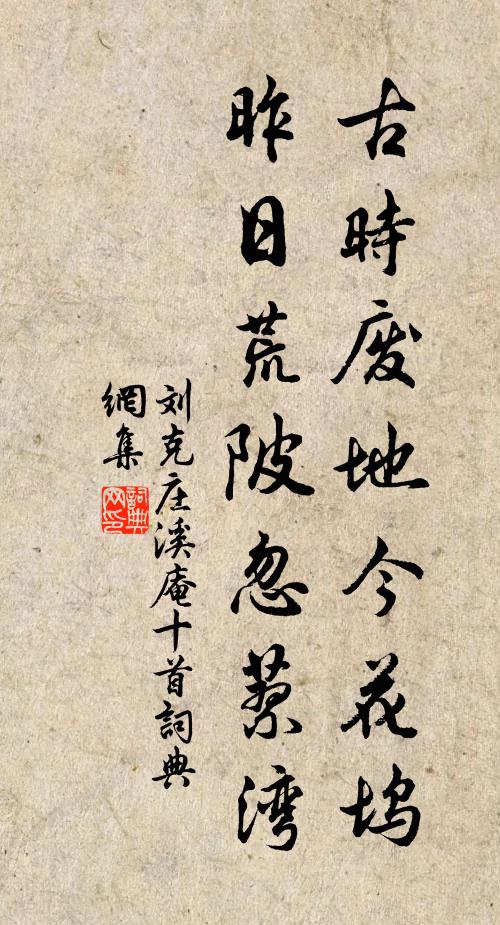 古時废地今花坞
昨日荒陂忽蔡湾
刘克庄溪庵十首詞典
網集
詞典
网印